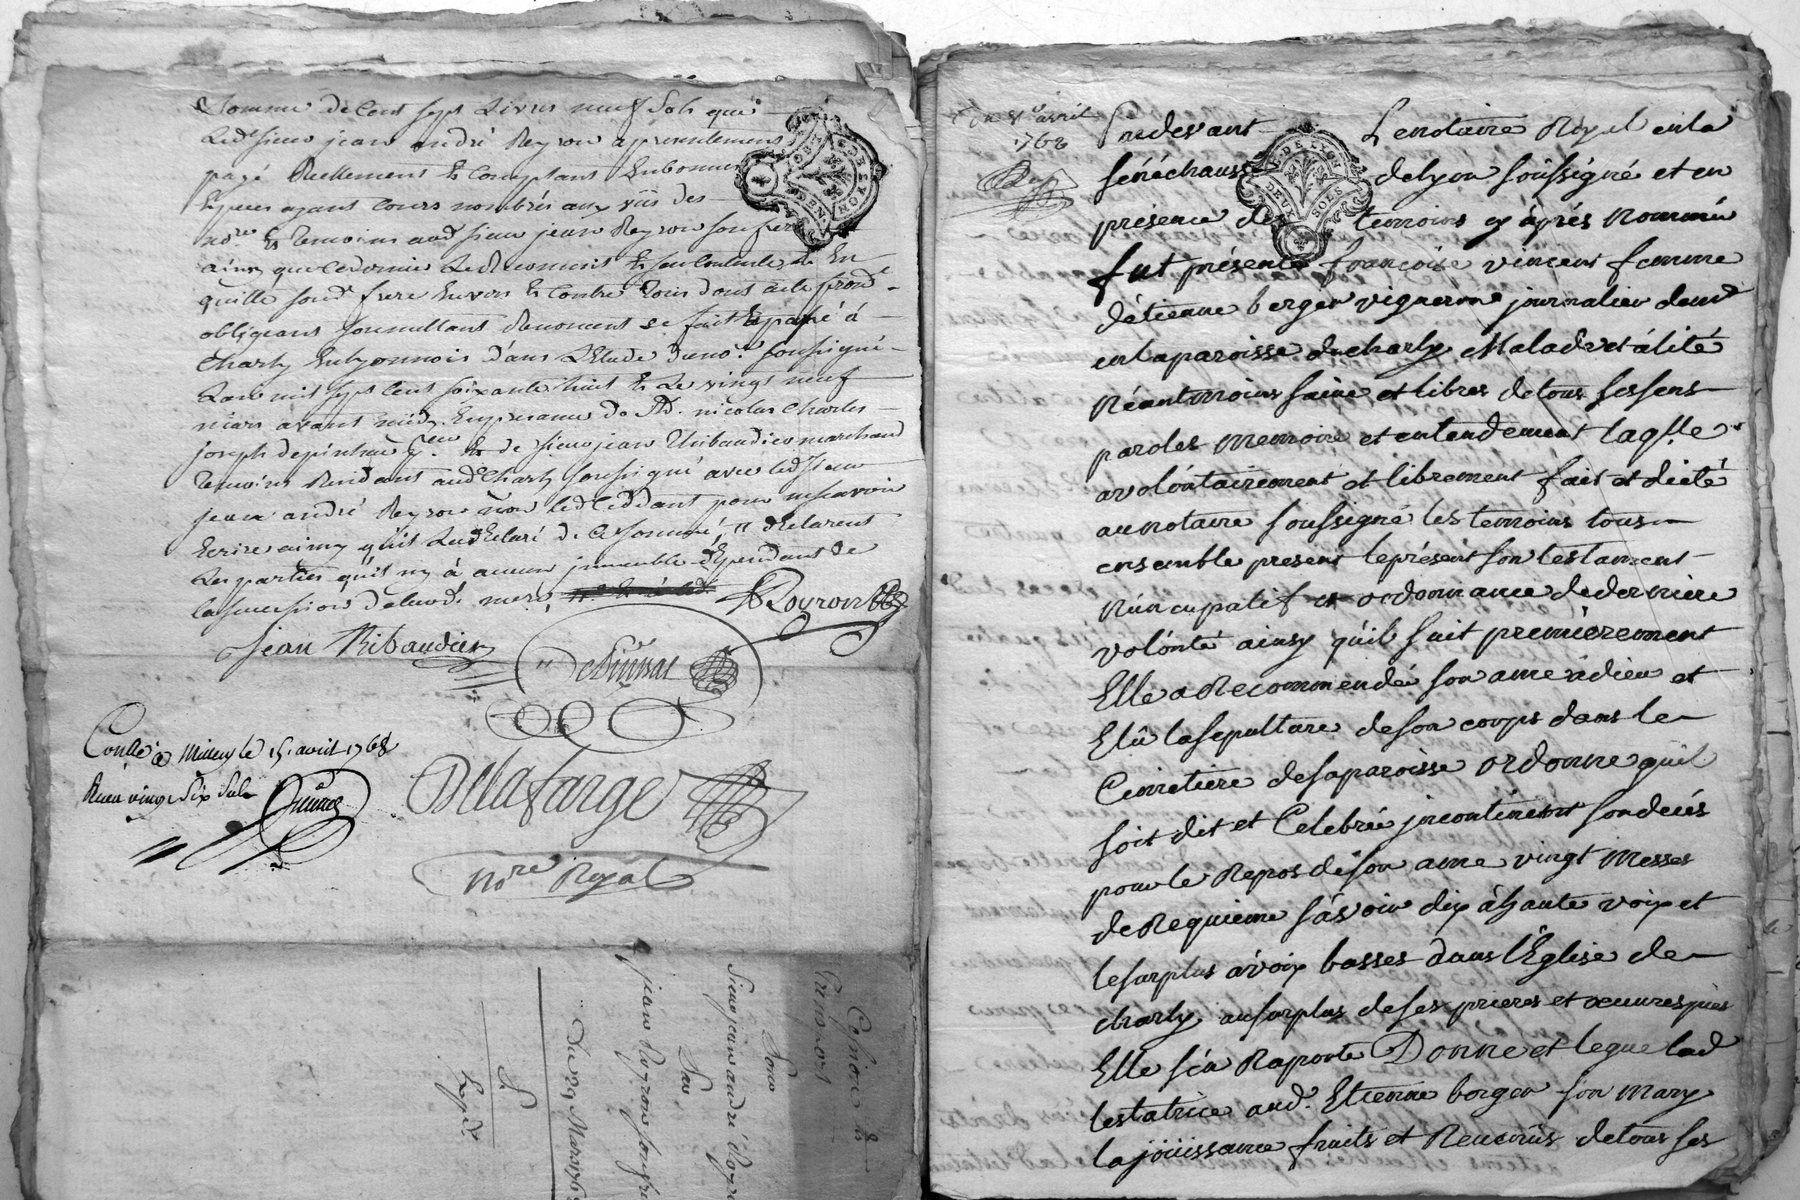 Somme de Cent sept Livres neuf sols que
Ledt sieur jean andré Reyron
payé Reellement & Comptant En bonnes
Especes ayant Cours nombrés aux vûs des
nore & temoins aud sieur jean Reyron son frere
ainsy que ce dernier Le Reconnoit & s'en Contente, En
quitte sond frere Envers & Contre tous dont acte prom
obligeans soumettans Renonceant &c fait & passé à
Charly En lyonnois dans L'Etude du nore soussigné
L'an mil sept Cent soixante huit & Le vingt neuf
mars avant midy En presence de nicolas Charles
joseph & de sieur jean Thibaudier marchand
temoins Residants aud Charly soussigné avec led sieur
jean andré Reyron non led Cedant pour ne sçavoir
Ecrire ainsy qu'il L'a declaré de Ce sommé, declarent
Les parties qu'il n'y à aucun immeuble dependant de
la succession de leurd. mere
Reyron
jean Thibaudier
Delafarge
nore Royal
Conllé à Millery le 15 avril 1768
Reçu vingt six sols
Cession &
Sieur jean andré Reyron
jean Reyron son frere
Du 29 Mars
Expé
Du avril
1768
Pardevant Le notaire Royal en la
sénéchaussée de lyon soussigné et en
présence des temoins cy après nommés
fut présente françoise vincent femme
d'étienne berger vigneron journalier demt
en la paroisse de charly Malade et alité
Néantmoins saine et libres de tous ses sens
paroles memoire et entendement laqlle
a volontairement et librement fait et dicté
au notaire soussigné les temoins tous
ensemble present le présent son testament
Nuncupatif et ordonnance de derniere
volonté ainsy qu'il suit premièrement
Elle a Recommendé son ame à dieu et
Elû la sepulture de son corps dans le
Cimetière de sa paroisse ordonne qu'il
soit dit et Celebrée incontinent son decés
pour le Repos de son ame vingt Messes
de Requieme sâvoir dix à haute voix et
le surplus à voix basses dans l'Eglise de
charly au surplus de ses prieres et œuvres pies
Elle s'en Raporte Donne et legue lad
testatrice aud. Etienne berger son mary
la joüissance fruits et Revenûs de tous ses